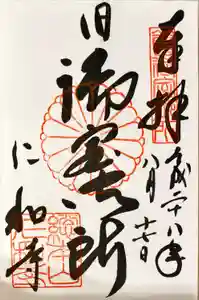 奉拝
平成二十八年
八月十七日
旧
御室御所
仁和寺